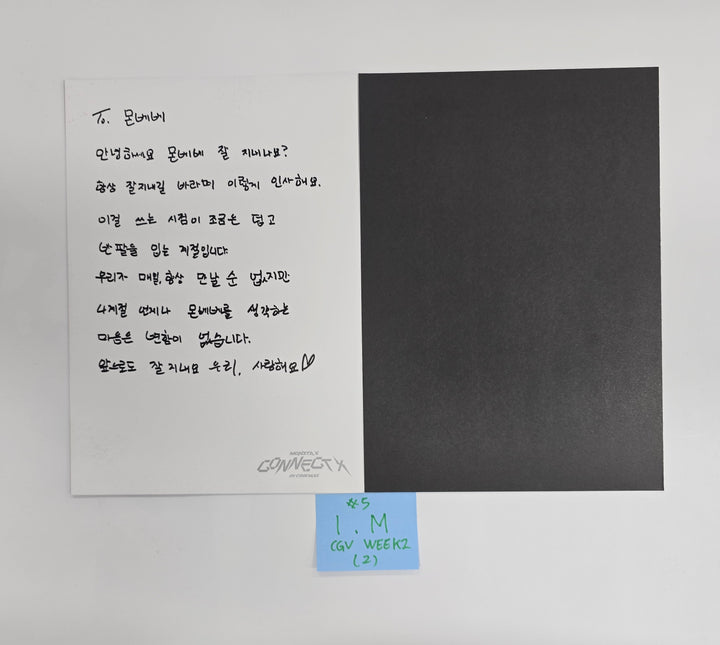 To. 몬베베
안녕하세요 몬베베 잘 지내나요?
항상 잘지내길 바라며 이렇게 인사해요.
이걸 쓰는 시점이 조금은 덥고
반팔을 입는 계절입니다.
우리가 매일, 항상 만날 순 없지만
사계절 언제나 몬베베를 생각하는
마음은 변함이 없습니다.
앞으로도 잘지내요 우리, 사랑해요♡
MONSTA X
CONNECT X
IN CINEMAS
#5
I.M
CGV WEEK2
(2)